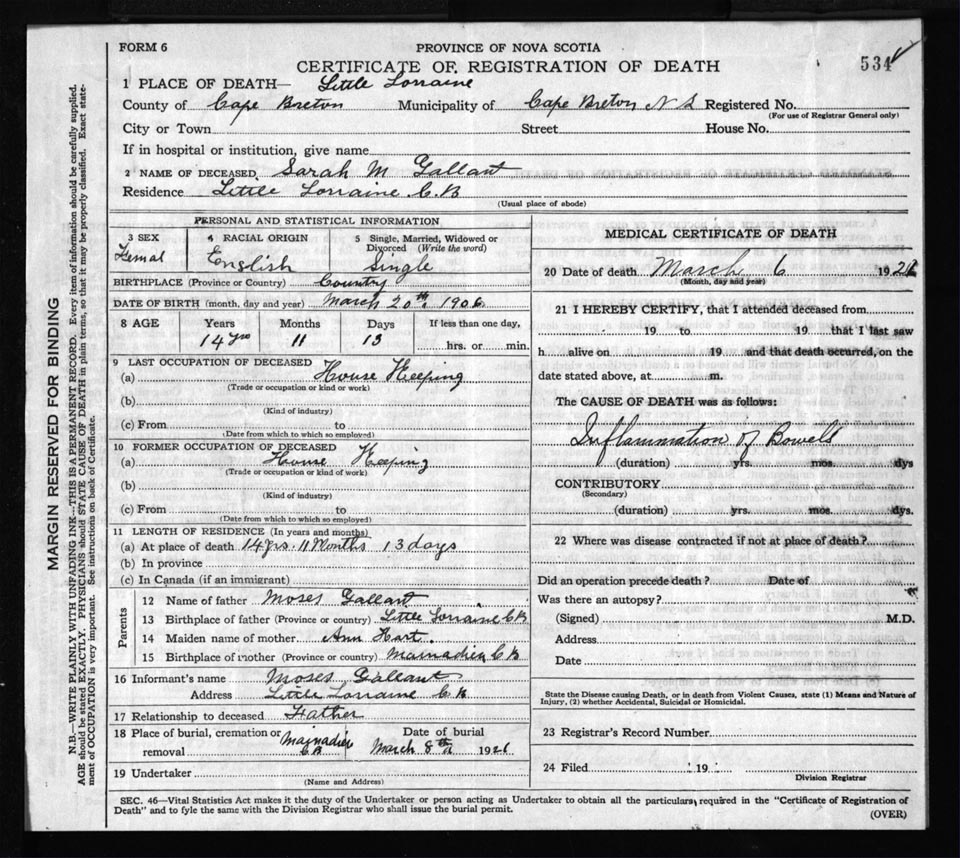 FORM 6
PROVINCE OF NOVA SCOTIA
CERTIFICATE OF REGISTRATION OF DEATH
534
1 PLACE OF DEATH— Little Lorraine
County of Cape Breton Municipality of Cape Breton N S Registered No.
(For use of Registrar General only)
City or Town Street House No.
If in hospital or institution, give name
2 NAME OF DECEASED. Sarah M Gallant
Residence Little Lorraine C.B
(Usual place of abode)
PERSONAL AND STATISTICAL INFORMATION
3 SEX 4 RACIAL ORIGIN 5 Single, Married, Widowed or Divorced (Write the word)
Femal English Single
BIRTHPLACE (Province or Country) Country
DATE OF BIRTH (month, day and year) March 20th 1906
8 AGE Years Months Days If less than one day,
14 yrs 11 13 hrs. or min.
9 LAST OCCUPATION OF DECEASED
(a) House Keeping
(Trade or occupation or kind or work)
(b)
(Kind of industry)
(c) From to
(Date from which to which so employed)
10 FORMER OCCUPATION OF DECEASED
(a) House Keeping
(Trade or occupation or kind of work)
(b)
(Kind of industry)
(c) From to
(Date from which to which so employed)
11 LENGTH OF RESIDENCE (In years and months)
(a) At place of death 14 yrs. 11 Months 13 days
(b) In province
(c) In Canada (if an immigrant)
Parents
12 Name of father Moses Gallant
13 Birthplace of father (Province or country) Little Lorraine C B
14 Maiden name of mother Ann Hart.
15 Birthplace of mother (Province or country) Mainadieu C B
16 Informant's name Moses Gallant
Address Little Lorraine C B
17 Relationship to deceased Father
18 Place of burial, cremation or removal Mainadieu C B
Date of burial March 8th 1921
19 Undertaker
(Name and Address)
MEDICAL CERTIFICATE OF DEATH
20 Date of death March 6 1921
(Month, day and year)
21 I HEREBY CERTIFY, that I attended deceased from
19 to 19 that I last saw
h alive on 19 and that death occurred, on the
date stated above, at m.
The CAUSE OF DEATH was as follows:
Inflammation of Bowels
(duration) yrs. mos. dys
CONTRIBUTORY
(Secondary)
(duration) yrs. mos. dys.
22 Where was disease contracted if not at place of death?
Did an operation precede death? Date of
Was there an autopsy?
(Signed) M.D.
Address
Date
State the Disease causing Death, or in death from Violent Causes, state (1) Means and Nature of
Injury, (2) whether Accidental, Suicidal or Homicidal.
23 Registrar's Record Number
24 Filed 19
Division Registrar
SEC. 46—Vital Statistics Act makes it the duty of the Undertaker or person acting as Undertaker to obtain all the particulars required in the "Certificate of Registration of
Death" and to fyle the same with the Division Registrar who shall issue the burial permit.
(OVER)
MARGIN RESERVED FOR BINDING
N.B.—WRITE PLAINLY WITH UNFADING INK—THIS IS A PERMANENT RECORD. Every item of information should be carefully supplied.
AGE should be stated EXACTLY. PHYSICIANS should STATE CAUSE OF DEATH in plain terms, so that it may be properly classified. Exact state-
ment of OCCUPATION is very important. See instructions on back of Certificate.